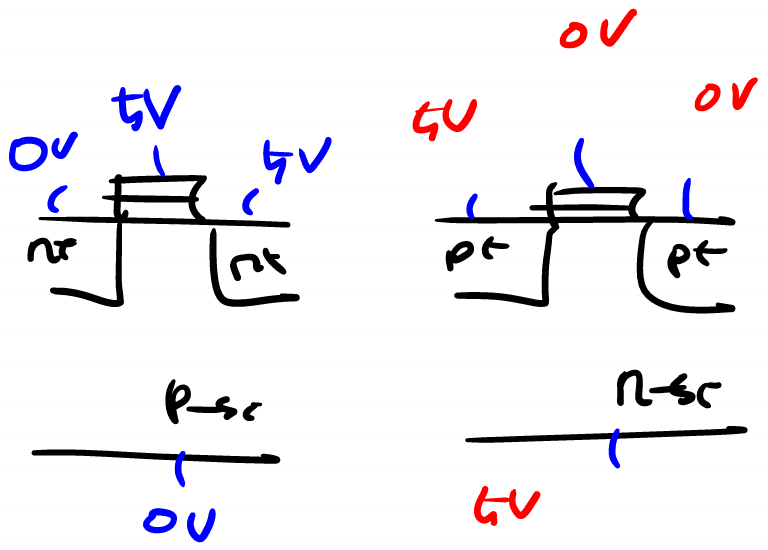 0V
5V
5V
n+
n+
p-sc
0V
5V
0V
0V
p+
p+
n-sc
5V